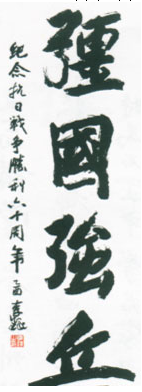 彊國強兵
纪念抗日戰争勝利六十周年